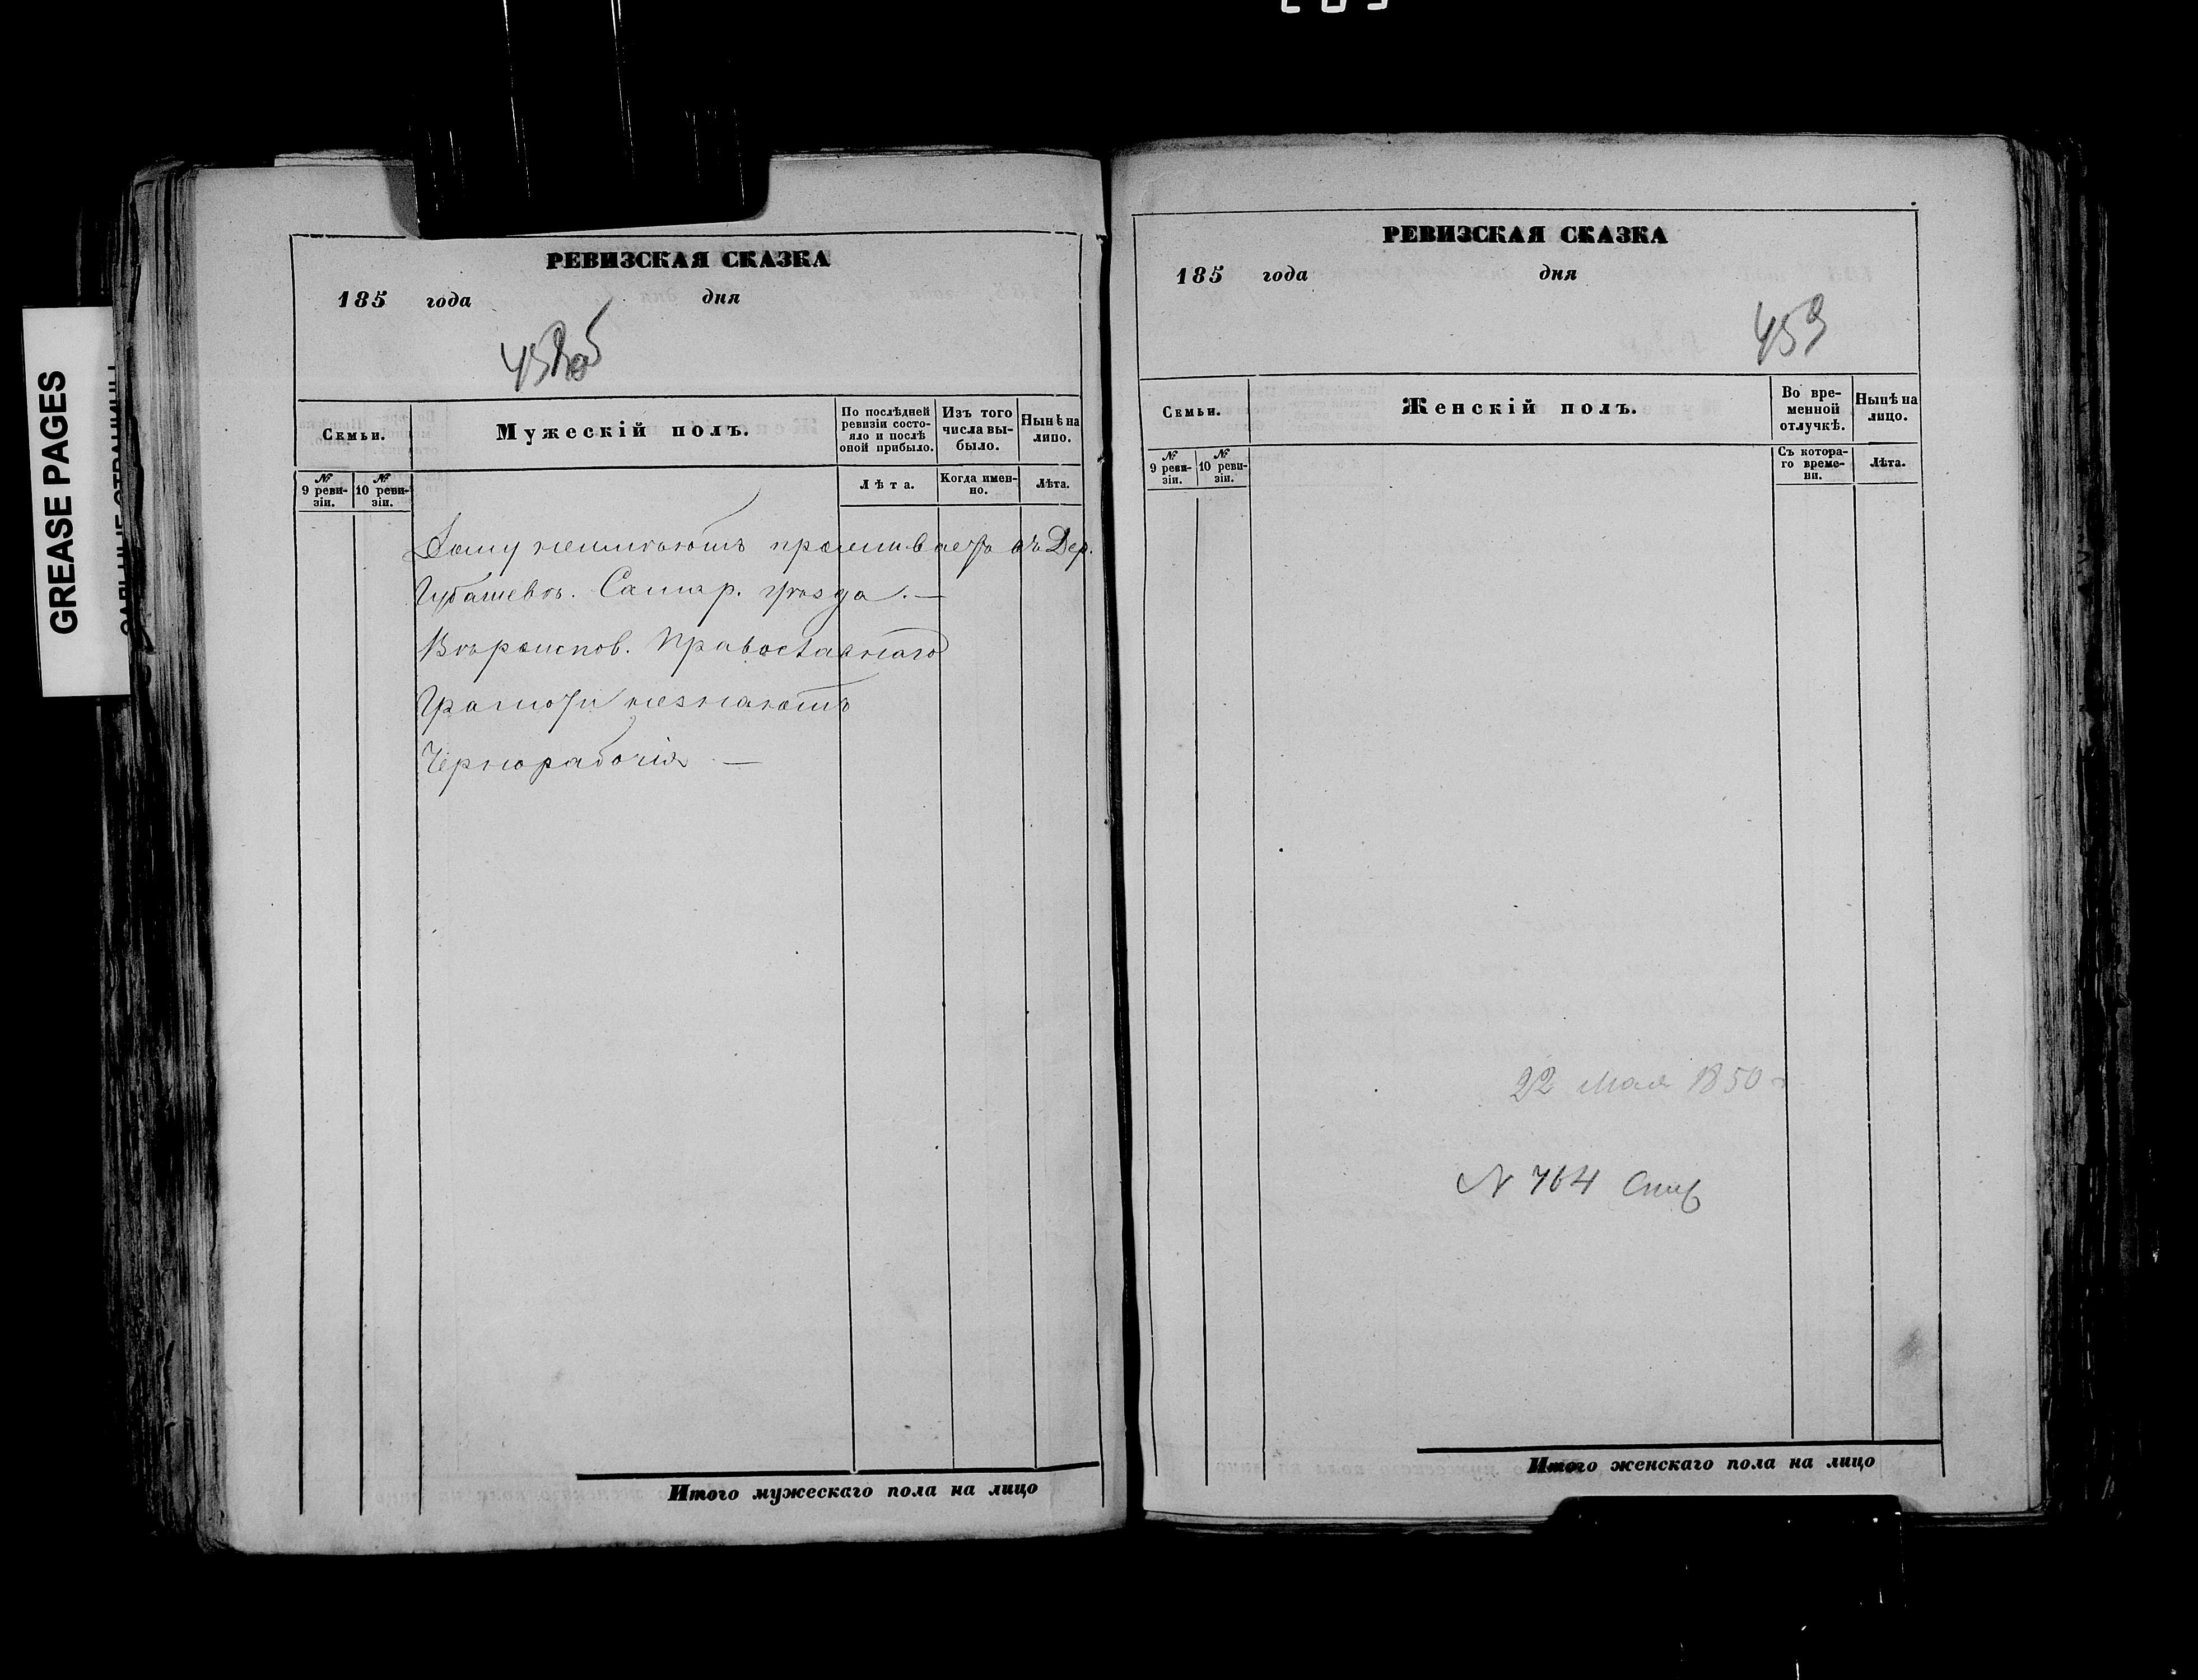 GREASE PAGES
РЕВИЗСКАЯ СКАЗКА
185 года дня
458об
Семьи.
Мужескій полъ.
По послѣдней ревизіи состояло и послѣ оной прибыло.
Изъ того числа выбыло.
Нынѣ на лицо.
№ 9 ревизіи.
№ 10 ревизіи.
Лѣта.
Когда именно.
Лѣта.
Дому неимѣютъ проживаетъ въ Дер.
Губашевѣ. Самар. уѣзда. —
Вѣроиспов. Православнаго
Грамоти незнаютъ
Чернорабочія —
Итого мужескаго пола на лицо
РЕВИЗСКАЯ СКАЗКА
185 года дня
459
Семьи.
Женскій полъ.
Во временной отлучкѣ.
Нынѣ на лицо.
№ 9 ревизіи.
№ 10 ревизіи.
Съ котораго времени.
Лѣта.
22 Мая 1850 г
N 764
Итого женскаго пола на лицо